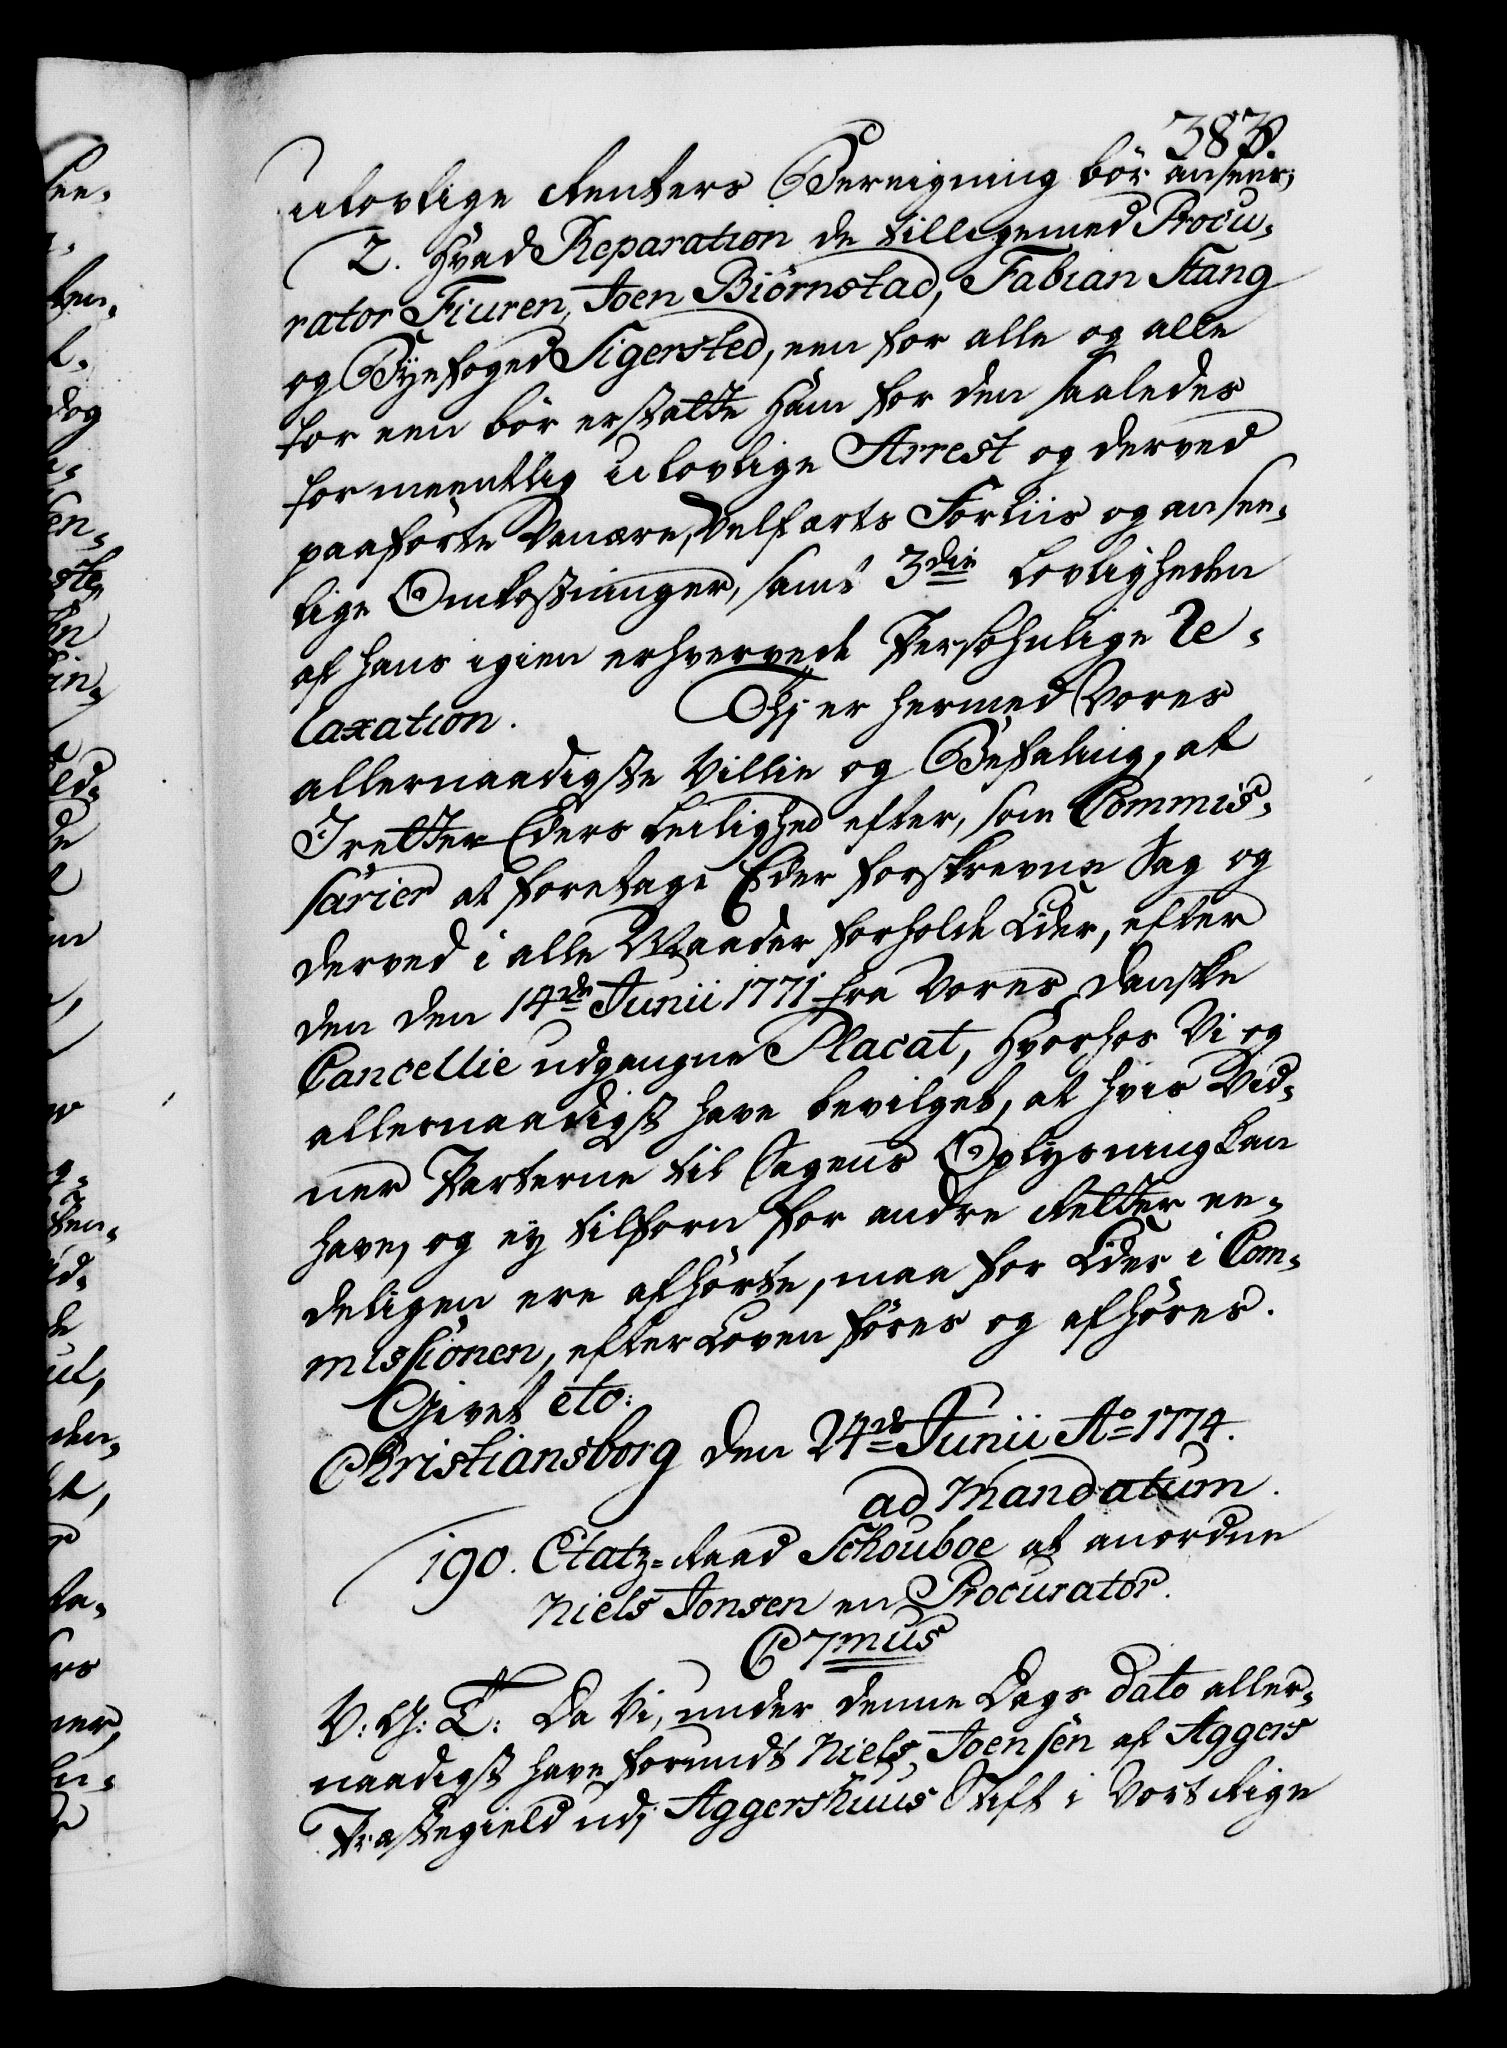 383.
ulovlige Renters Beregning bør ansees,
2. Hvad Reparation de tilligemed Procu-
rator Fiuren, Joen Biörnstad, Fabian Stang
og Byefoged Sigersted, een for alle og alle
for een bör erstatte ham for den saaledes
formeentlig ulovlige Arrest og derved
paaførte Vanære, Velfærts Forliis og ansee-
lige Omkostninger, samt 3die Lovligheden
af hans igien erhvervede Persohnlige Re-
laxation. Thj er hermed Vores
allernaadigste Villie og Befaling, at
I retter Eders Leilighed efter, som Commis-
sarier at foretage Eder forskrevne Sag og
derved i alle Maader forholde Eder, efter
den den 14de Junii 1771 fra Vores danske
Cancellie udgangne Placat, hvorhos Vi og
allernaadigst have bevilget, at hvis Vid-
ner Parterne til Sagens Oplysning kan
have, og ey tilforn for andre Retter ee-
deligen ere afhörte, maa for Eder i Com-
missionen, efter Loven föres og afhöres.
Givet etc:
Christiansborg den 24de Junii Ao 1774.
ad Mandatum.
190. Etatz-Raad Schouboe at anordne
Niels Jonsen en Procurator.
C 7mus
V: G: T: Da Vi, under denne Dags Dato aller-
naadigst have forundt Niels Joensen af Aggers
Præstegield udj Aggershuus Stift i Vort Rige